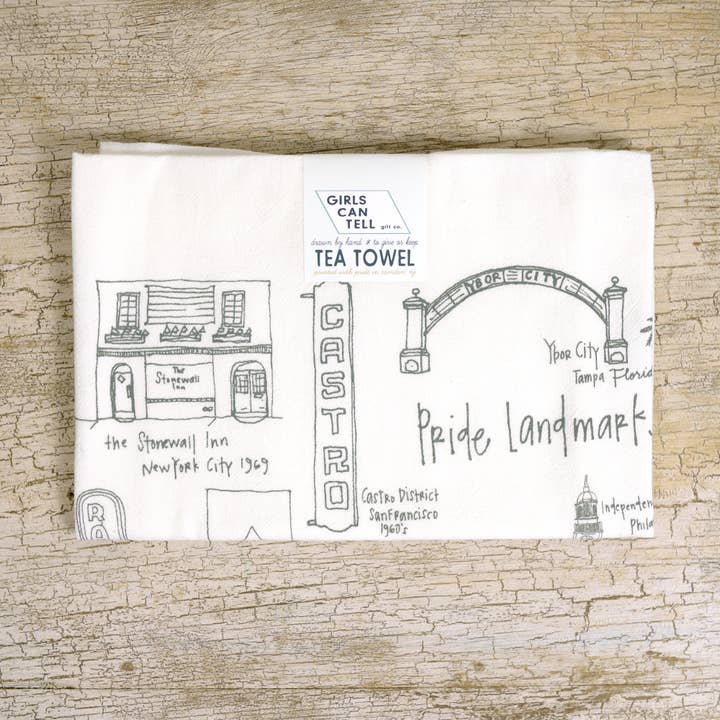 GIRLS
CAN
TELL gift co.
drawn by hand & to give or keep
TEA TOWEL
printed with pride in camden, nj
YBOR CITY
The
Stonewall
Inn
CASTRO
Ybor City
Tampa Florid
Pride Landmark
the Stonewall Inn
New York City 1969
Castro District
San Francisco
1960's
Independen
Phila
RA